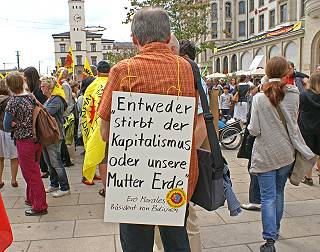 „Entweder
stirbt der
Kapitalismus
oder unsere
Mutter Erde"
Evo Morales
Präsident von Bolivien